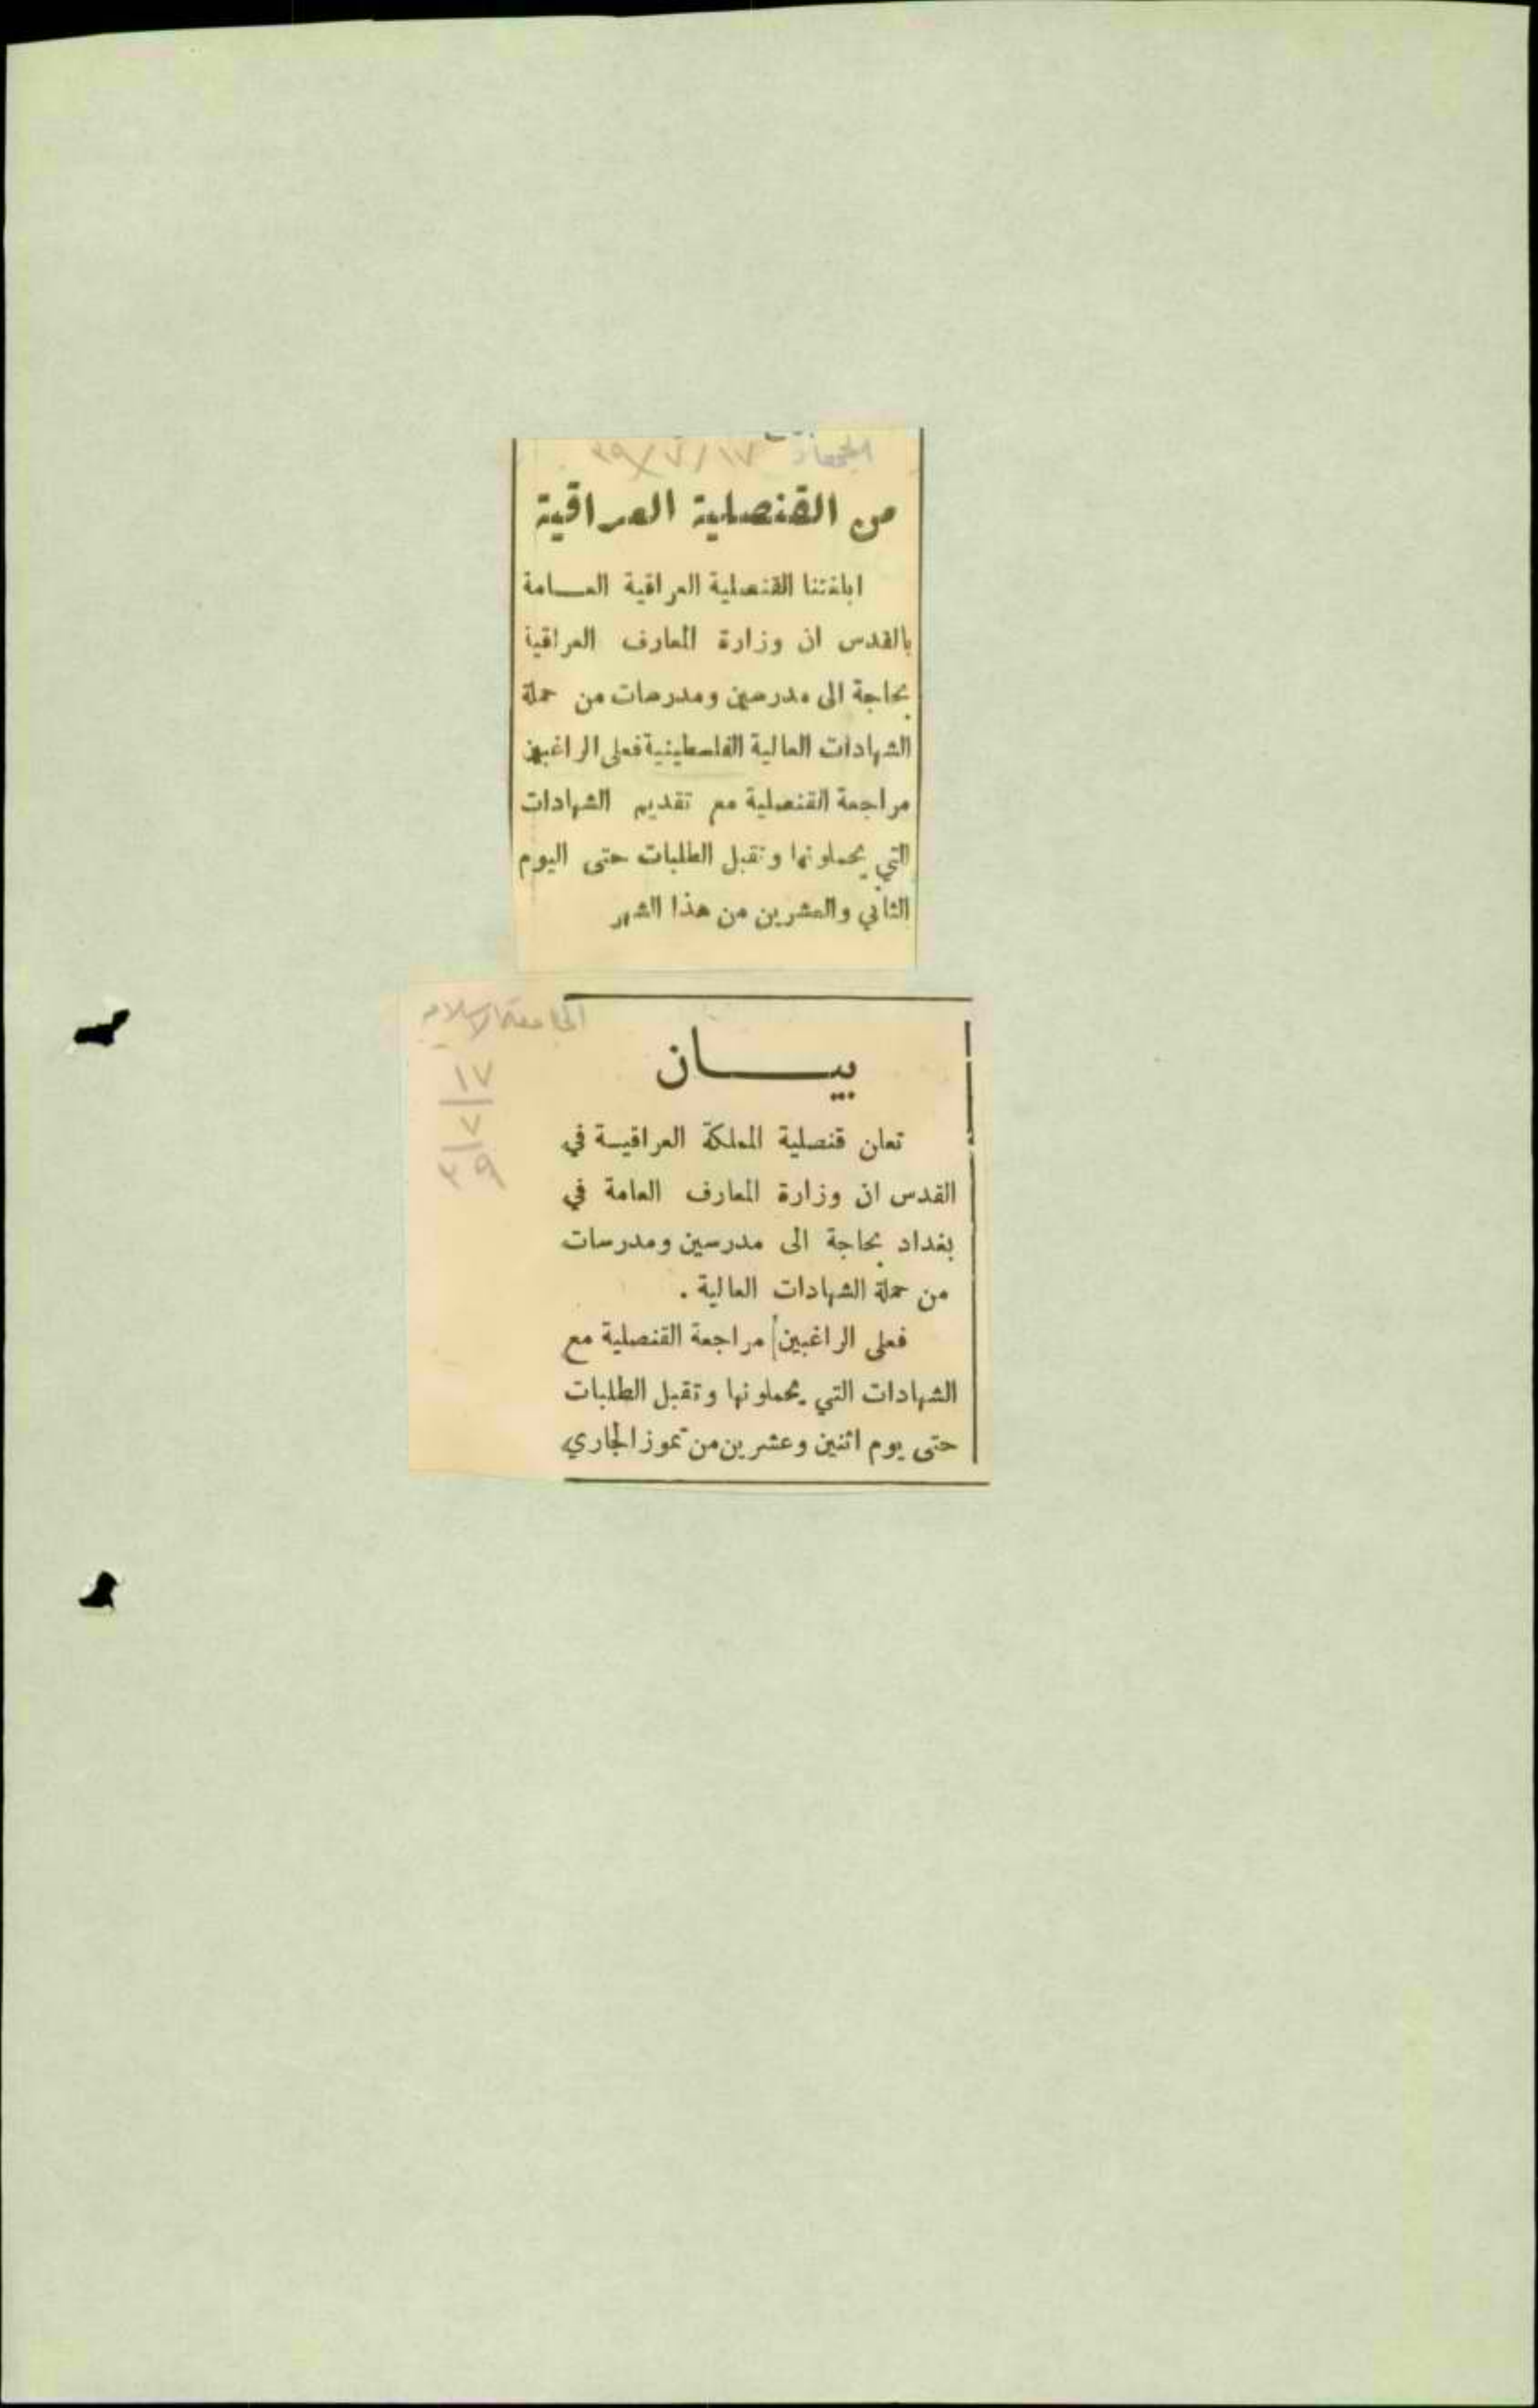 ١٧/٧/٣٩
من القنصلية العراقية
ابلغتنا القنصلية العراقية العـــامة
بالقدس ان وزارة المعارف العراقية
بحاجة الى مدرسين ومدرسات من حملة
الشهادات العالية الفلسطينية فعلى الراغبين
مراجعة القنصلية مع تقديم الشهادات
التي يحملونها وتقبل الطلبات حتى اليوم
الثاني والعشرين من هذا الشهر
الجامعة الاسلامية
١٧
٧
٣٩
بيـــــان
تعلن قنصلية المملكة العراقيـة في
القدس ان وزارة المعارف العامة في
بغداد بحاجة الى مدرسين ومدرسات
من حملة الشهادات العالية .
فعلى الراغبين مراجعة القنصلية مع
الشهادات التي يحملونها وتقبل الطلبات
حتى يوم اثنين وعشرين من تموز الجاري